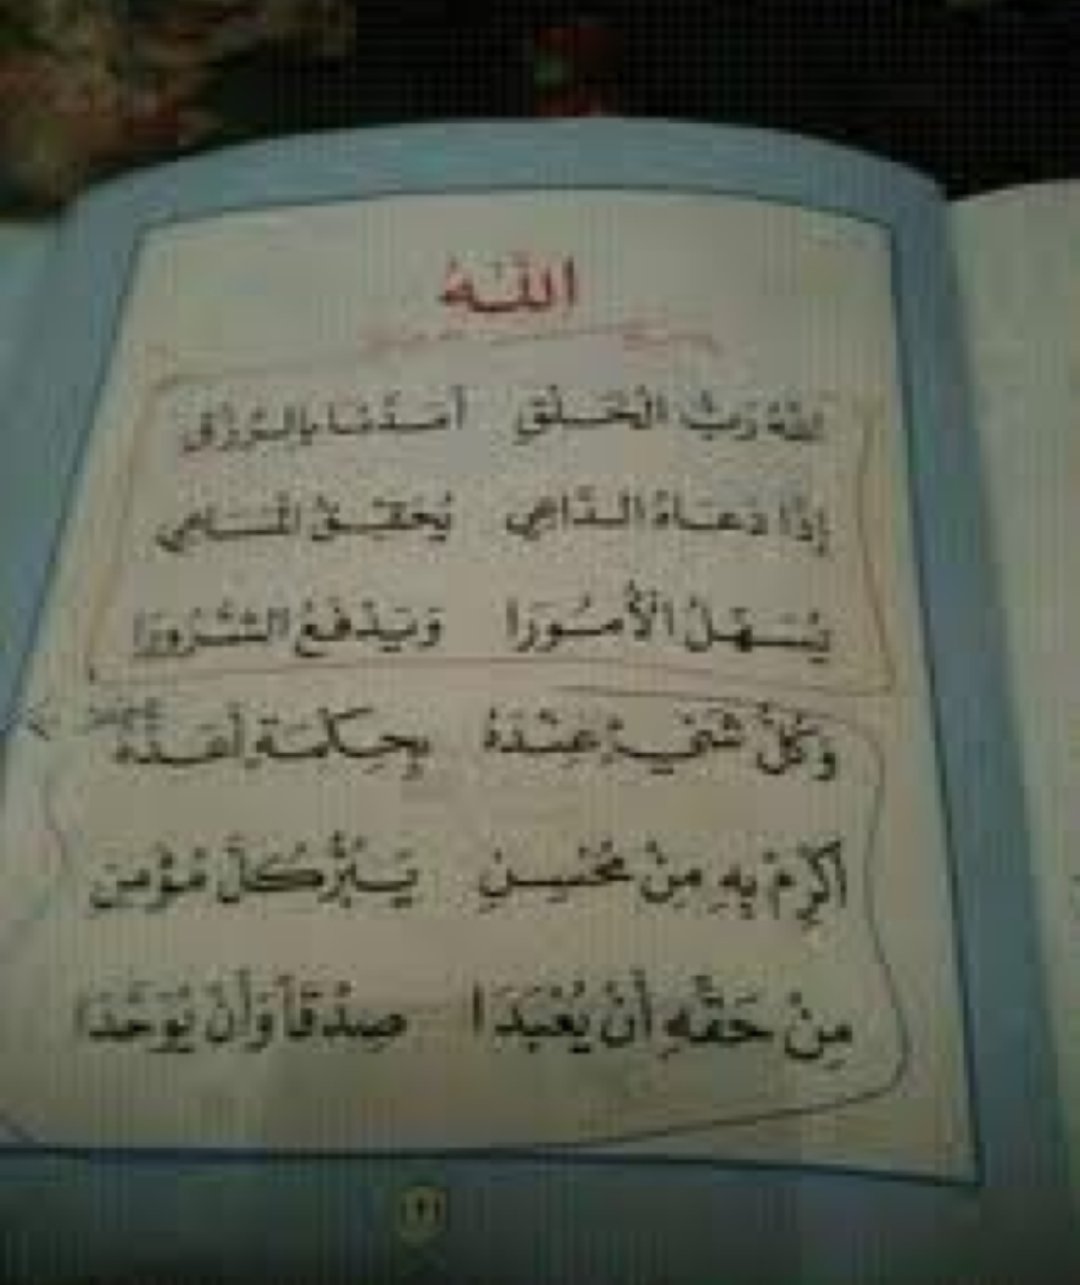 اللهُ
اللهُ رَبُّ الْخَلْقِ أَمَدَّنَا بِالرِّزْقِ
إِذَا دَعَاهُ الدَّاعِي يُحَقِّقُ الْمَسَاعِي
يُسَهِّلُ الْأُمُورَا وَيَدْفَعُ الشُّرُورَا
وَكُلُّ شَيْءٍ عِنْدَهُ بِحِكْمَةٍ أَعَدَّهُ
أَكْرِمْ بِهِ مِنْ مُحْسِنِ يَبَرُّ كُلَّ مُؤْمِنِ
مِنْ حَقِّهِ أَنْ يُعْبَدَا صِدْقاً وَأَنْ يُوَحَّدَا